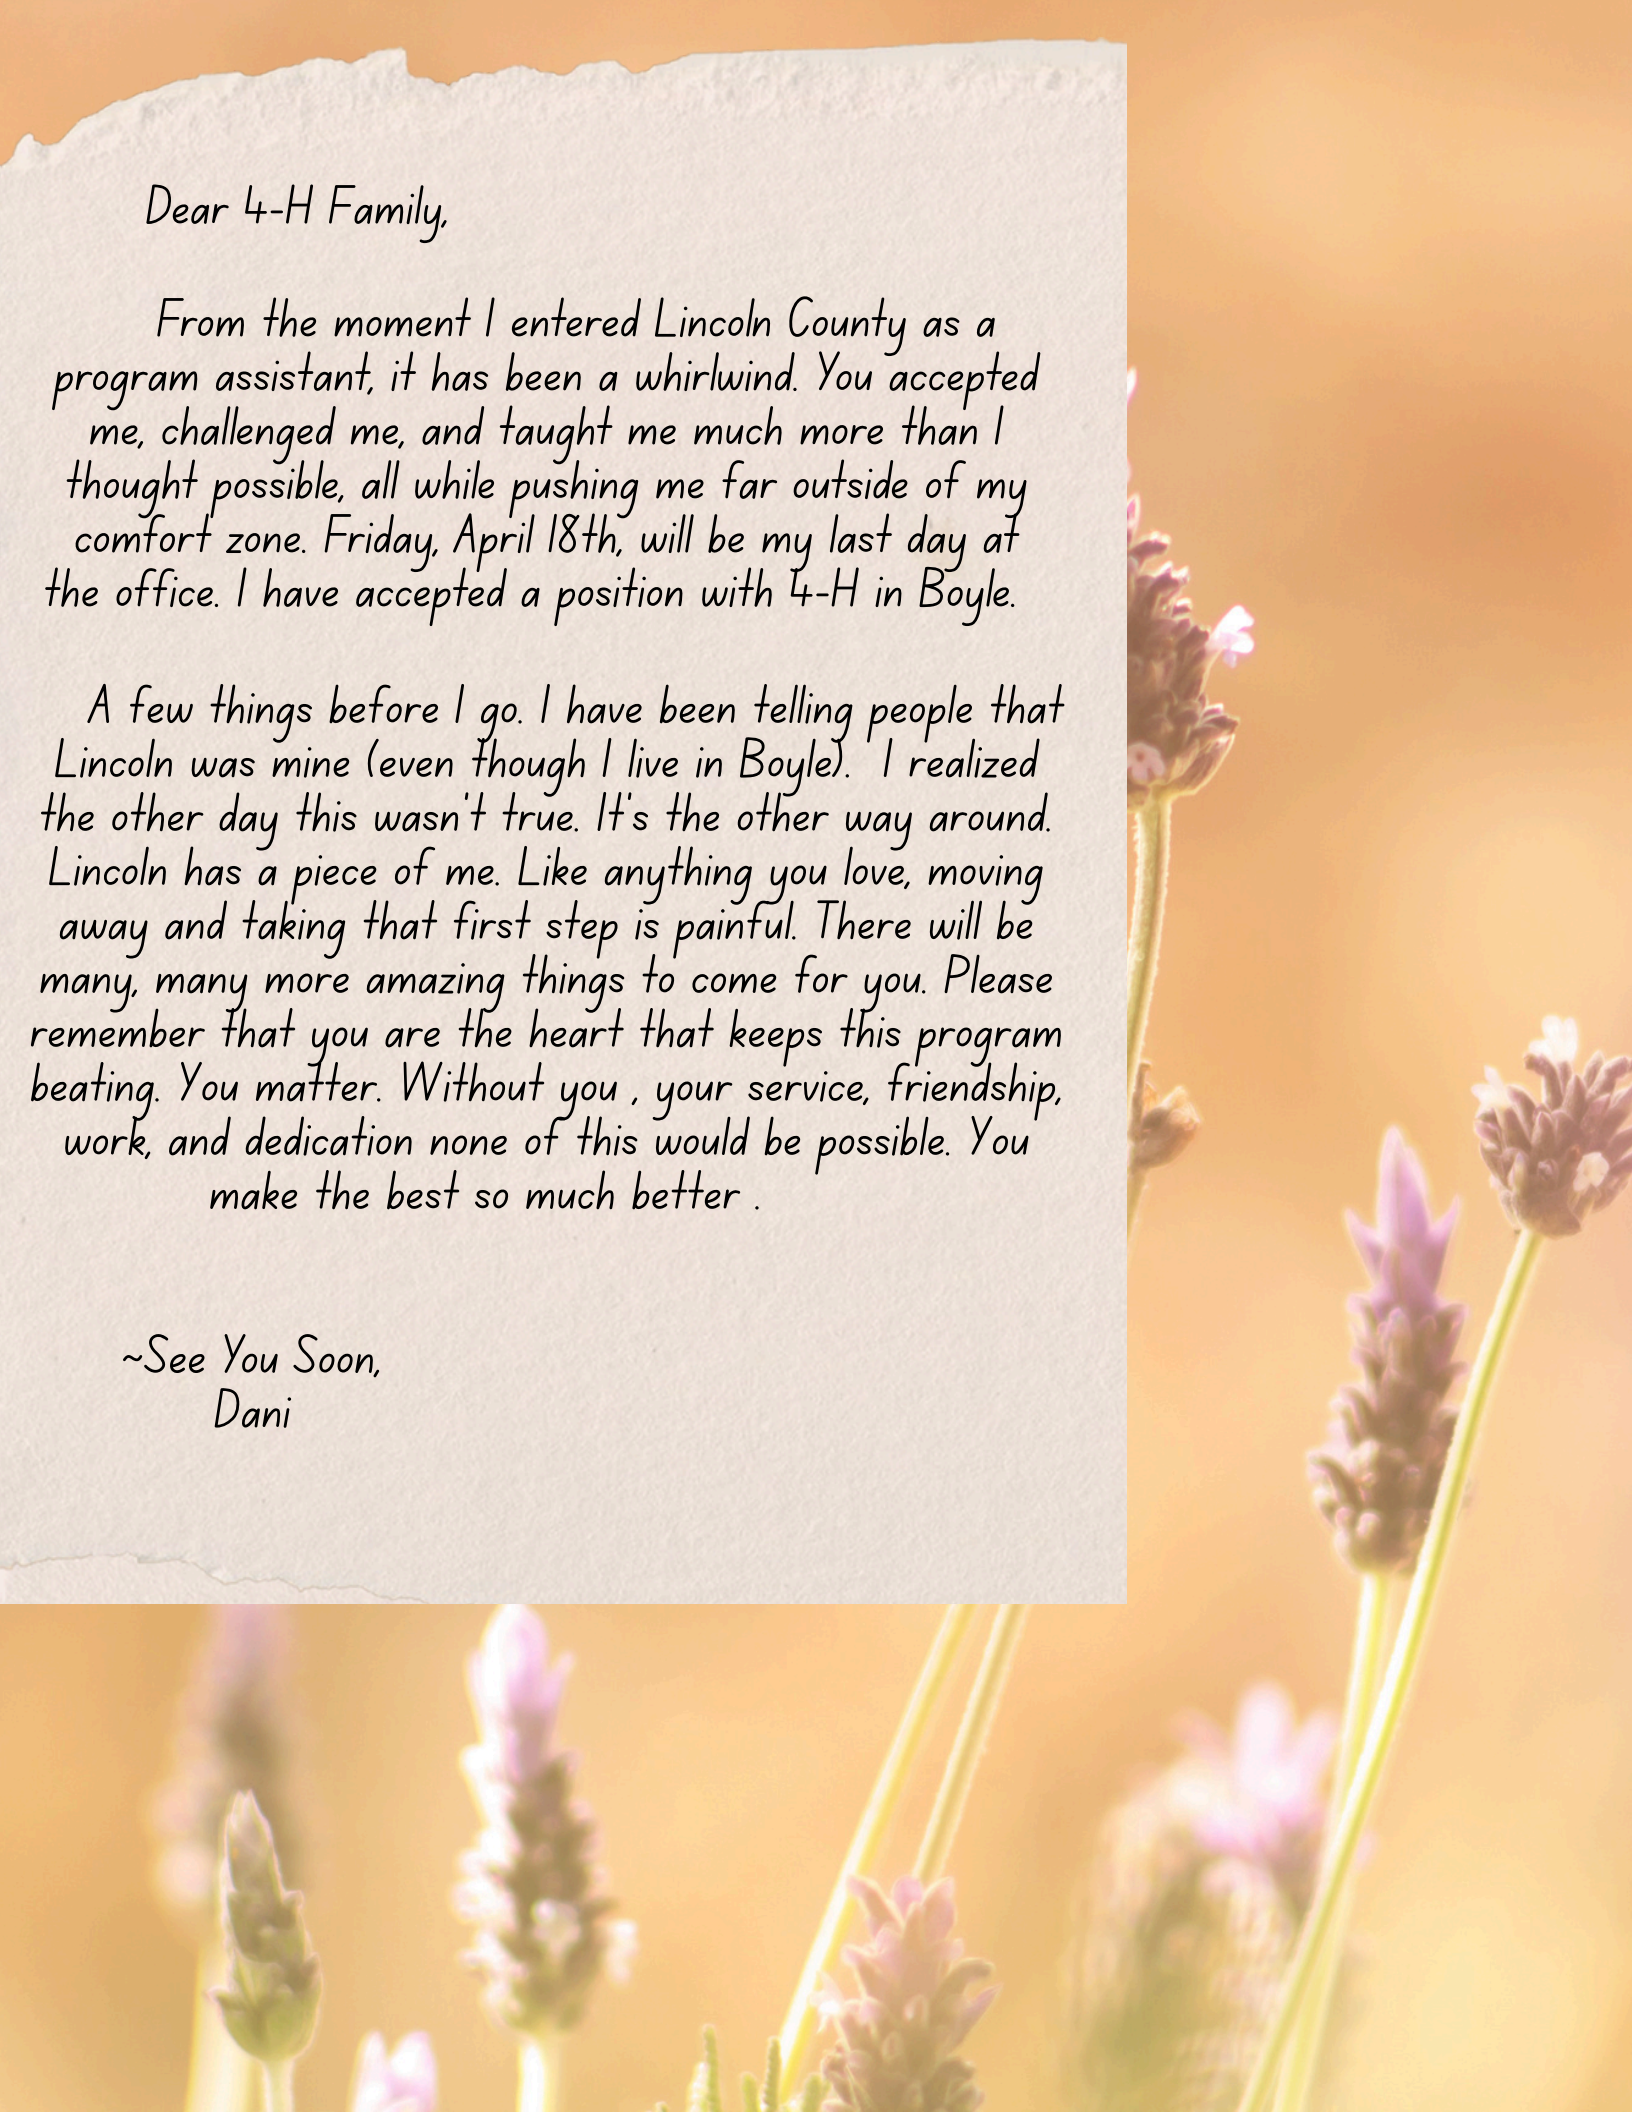 Dear 4-H Family,
From the moment I entered Lincoln County as a
program assistant, it has been a whirlwind. You accepted
me, challenged me, and taught me much more than I
thought possible, all while pushing me far outside of my
comfort zone. Friday, April 18th, will be my last day at
the office. I have accepted a position with 4-H in Boyle.
A few things before I go. I have been telling people that
Lincoln was mine (even though I live in Boyle).  I realized
the other day this wasn't true. It's the other way around.
Lincoln has a piece of me. Like anything you love, moving
away and taking that first step is painful. There will be
many, many more amazing things to come for you. Please
remember that you are the heart that keeps this program
beating. You matter. Without you , your service, friendship,
work, and dedication none of this would be possible. You
make the best so much better .
~See You Soon,
Dani